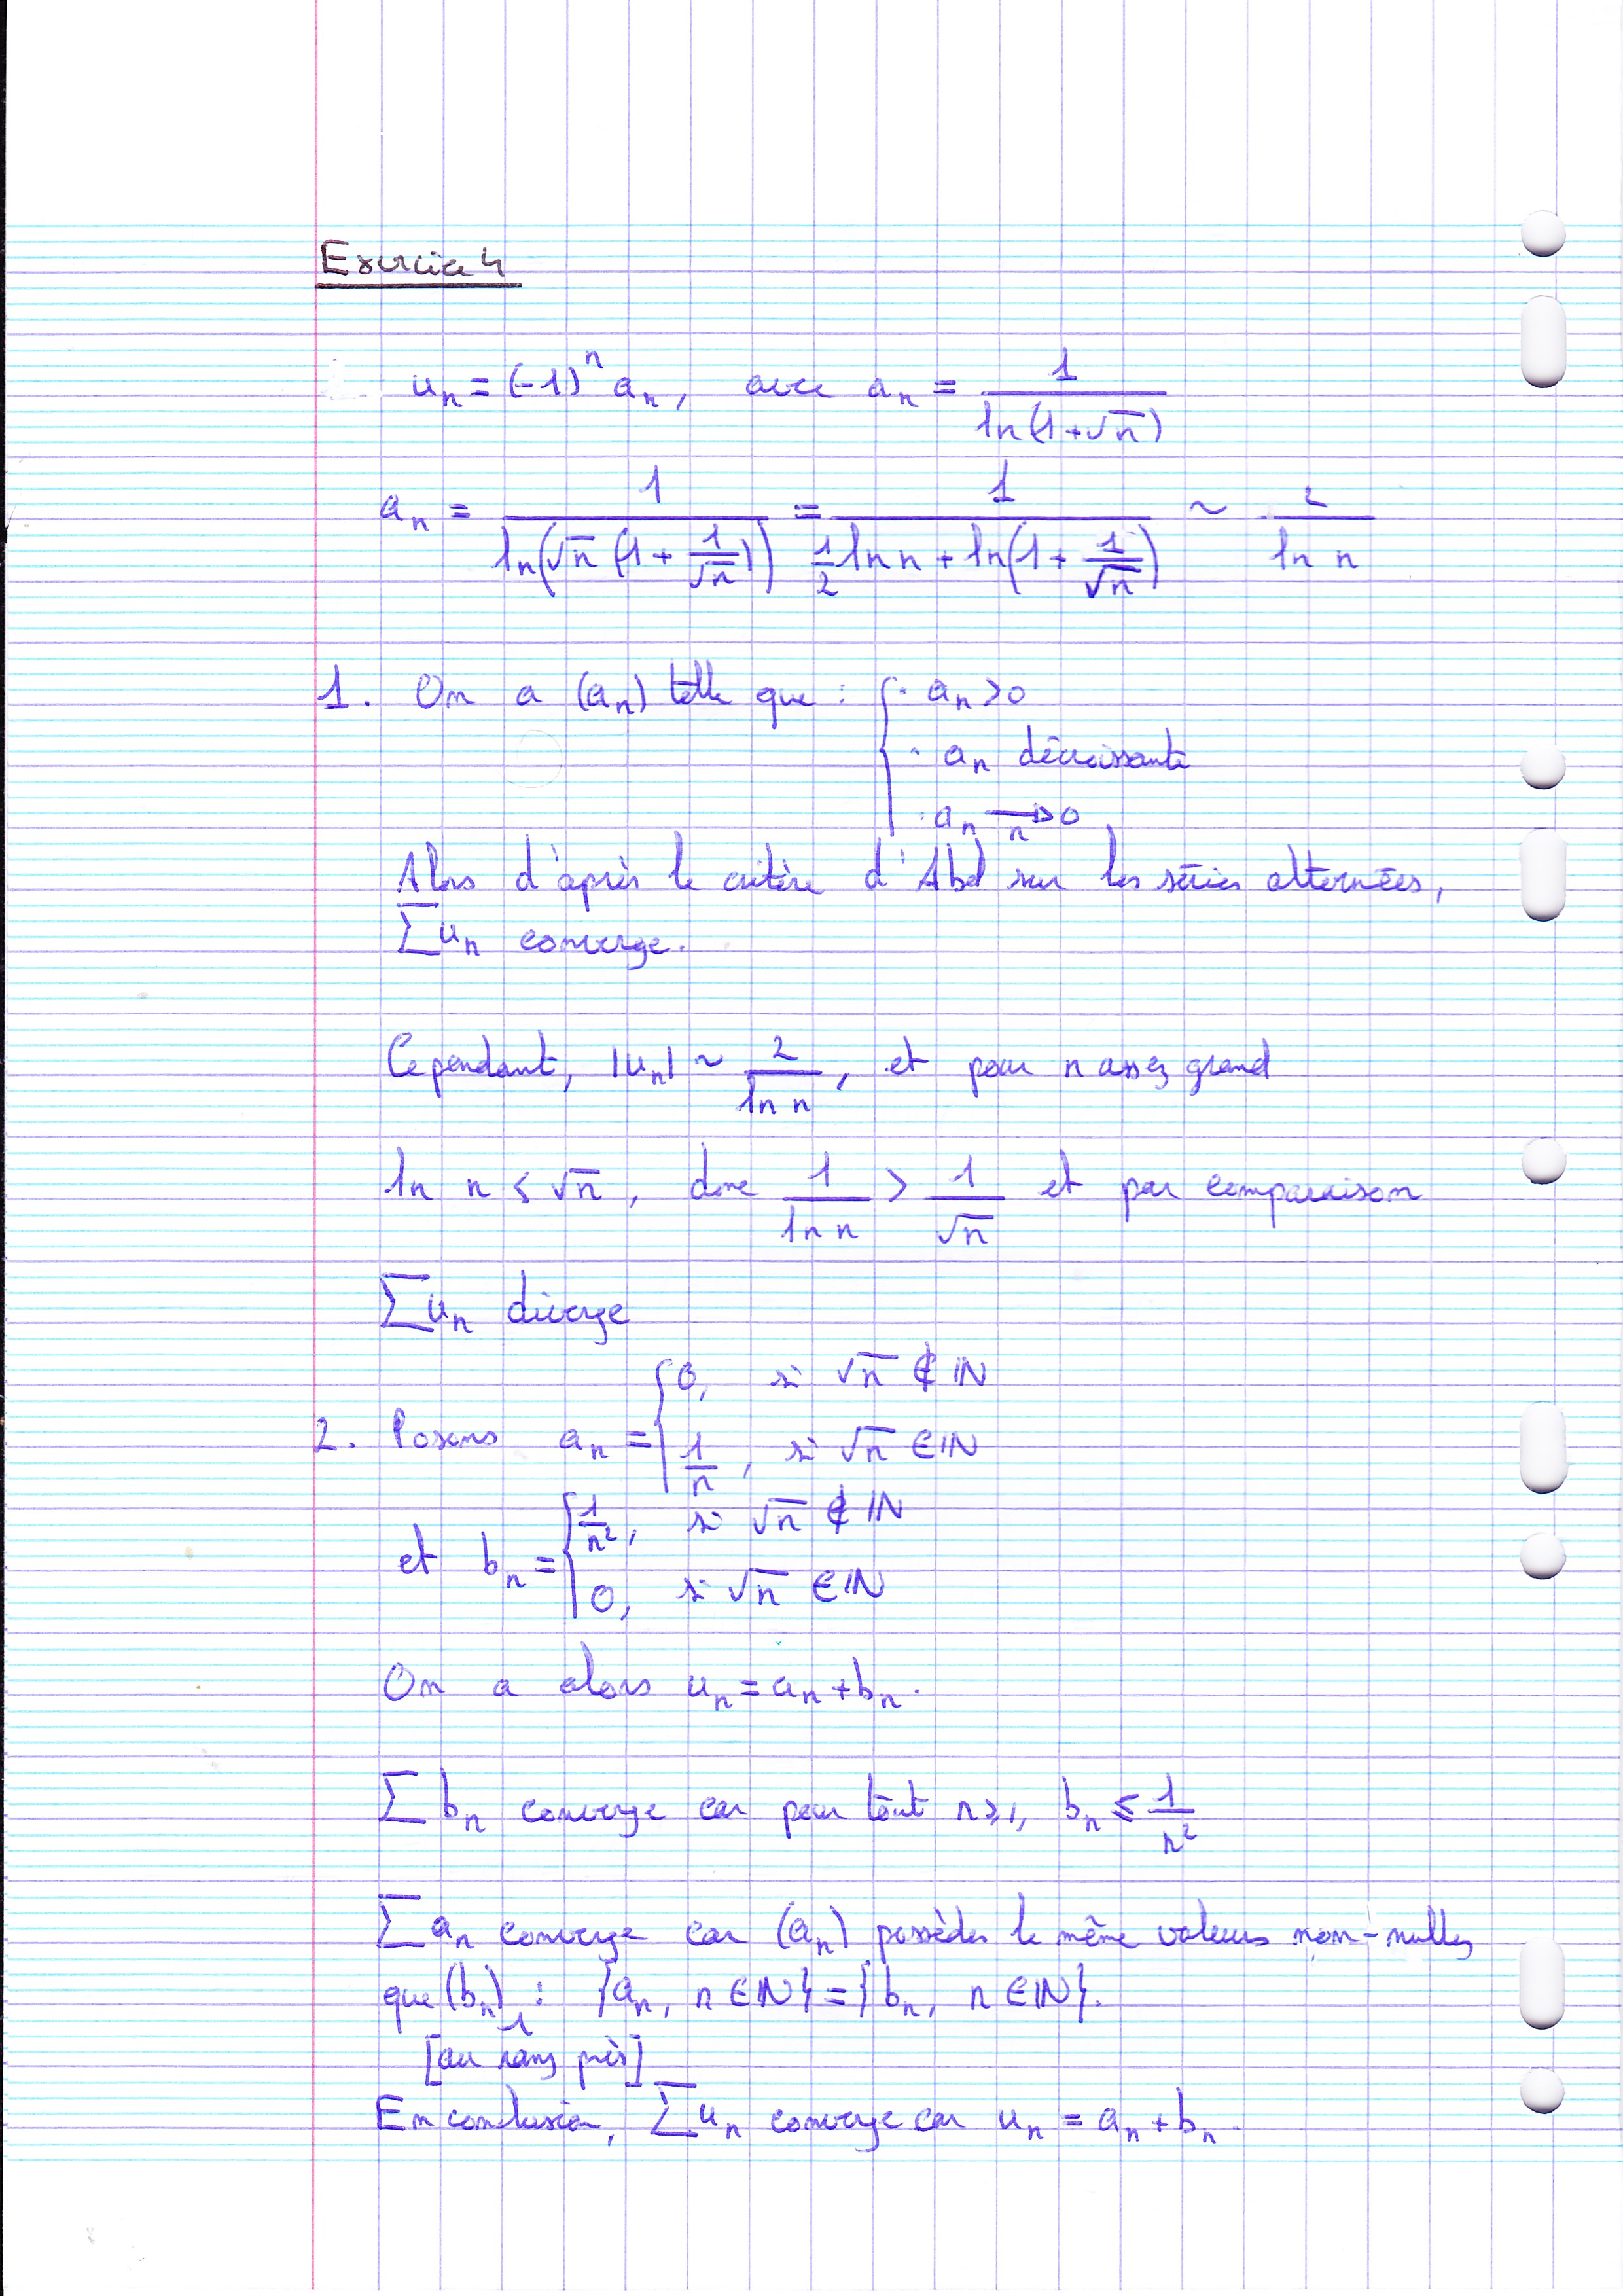 Exercice 4
uₙ = (-1)ⁿ aₙ, avec aₙ = 1/ln(1+√n)
aₙ = 1/ln(√n (1 + 1/√n)) = 1/(1/2 ln n + ln(1 + 1/√n)) ~ 2/ln n
1. On a (aₙ) telle que : { · aₙ > 0
· aₙ décroissante
· aₙ →ₙ 0
Alors d'après le critère d'Abel sur les séries alternées,
∑uₙ converge.
Cependant, |uₙ| ~ 2/ln n, et pour n assez grand
ln n ≤ √n, donc 1/ln n > 1/√n et par comparaison
∑uₙ diverge
2. Posons aₙ = { 0, si √n ∉ ℕ
1/n, si √n ∈ ℕ
et bₙ = { 1/n², si √n ∉ ℕ
0, si √n ∈ ℕ
On a alors uₙ = aₙ + bₙ.
∑ bₙ converge car pour tout n ≥ 1, bₙ ≤ 1/n²
∑ aₙ converge car (aₙ) possèdes le même valeurs non-nulles
que (bₙ) : {aₙ, n ∈ ℕ} = {bₙ, n ∈ ℕ}.
[au rang 1 près]
En conclusion, ∑uₙ converge car uₙ = aₙ + bₙ.